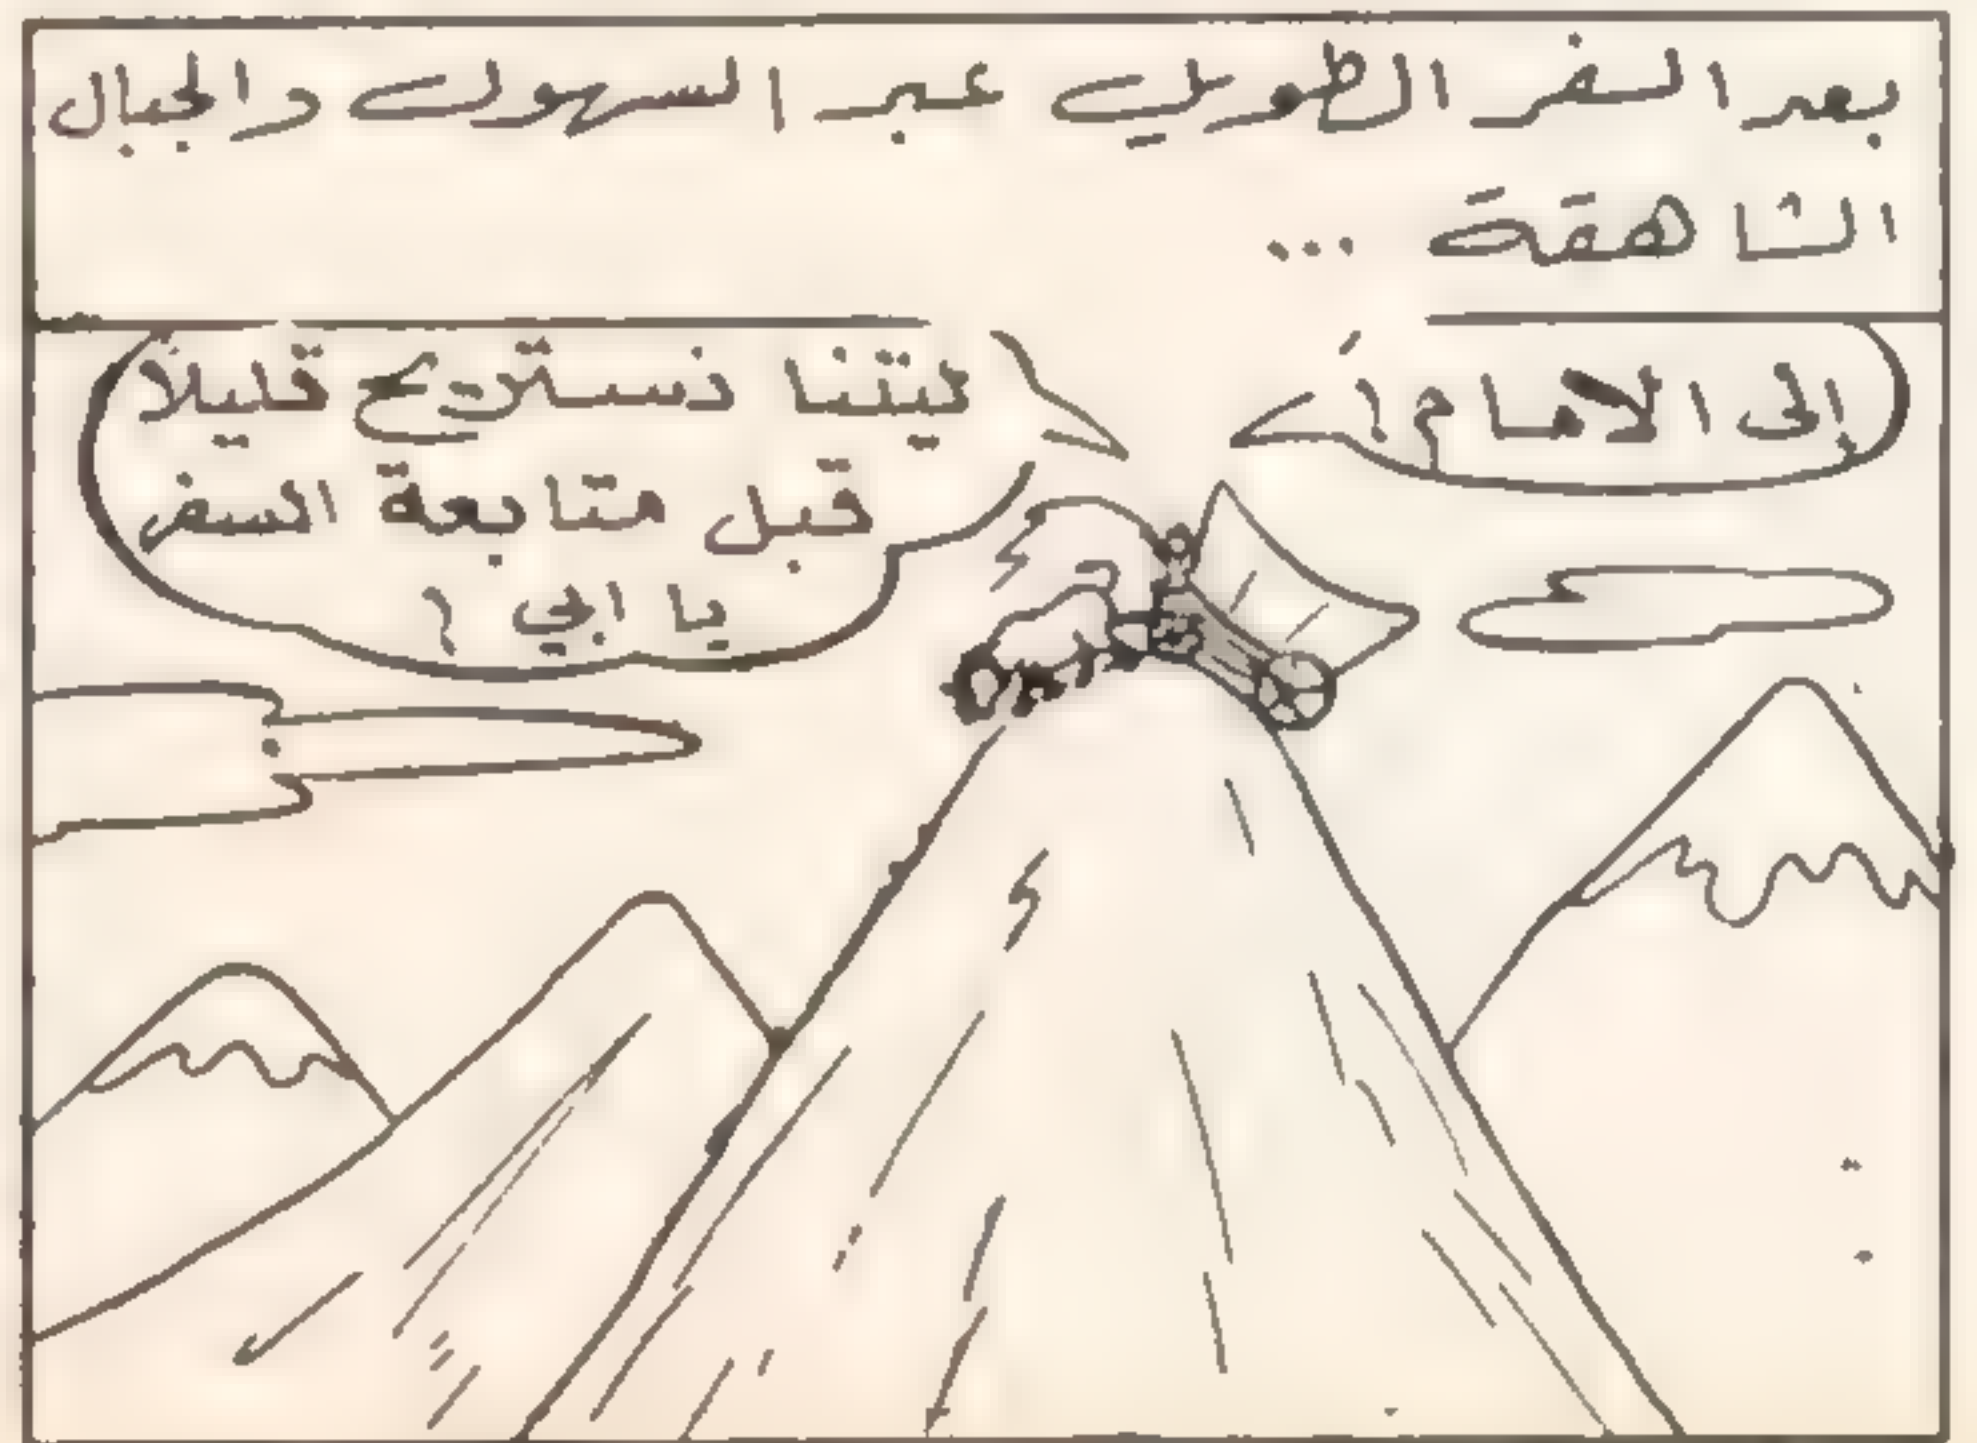 بعد السفر الطويل عبر السهول والجبال
الشاهقة ...
إلى الامام !
ليتنا نستريح قليلاً
قبل متابعة السفر
يا ابي !